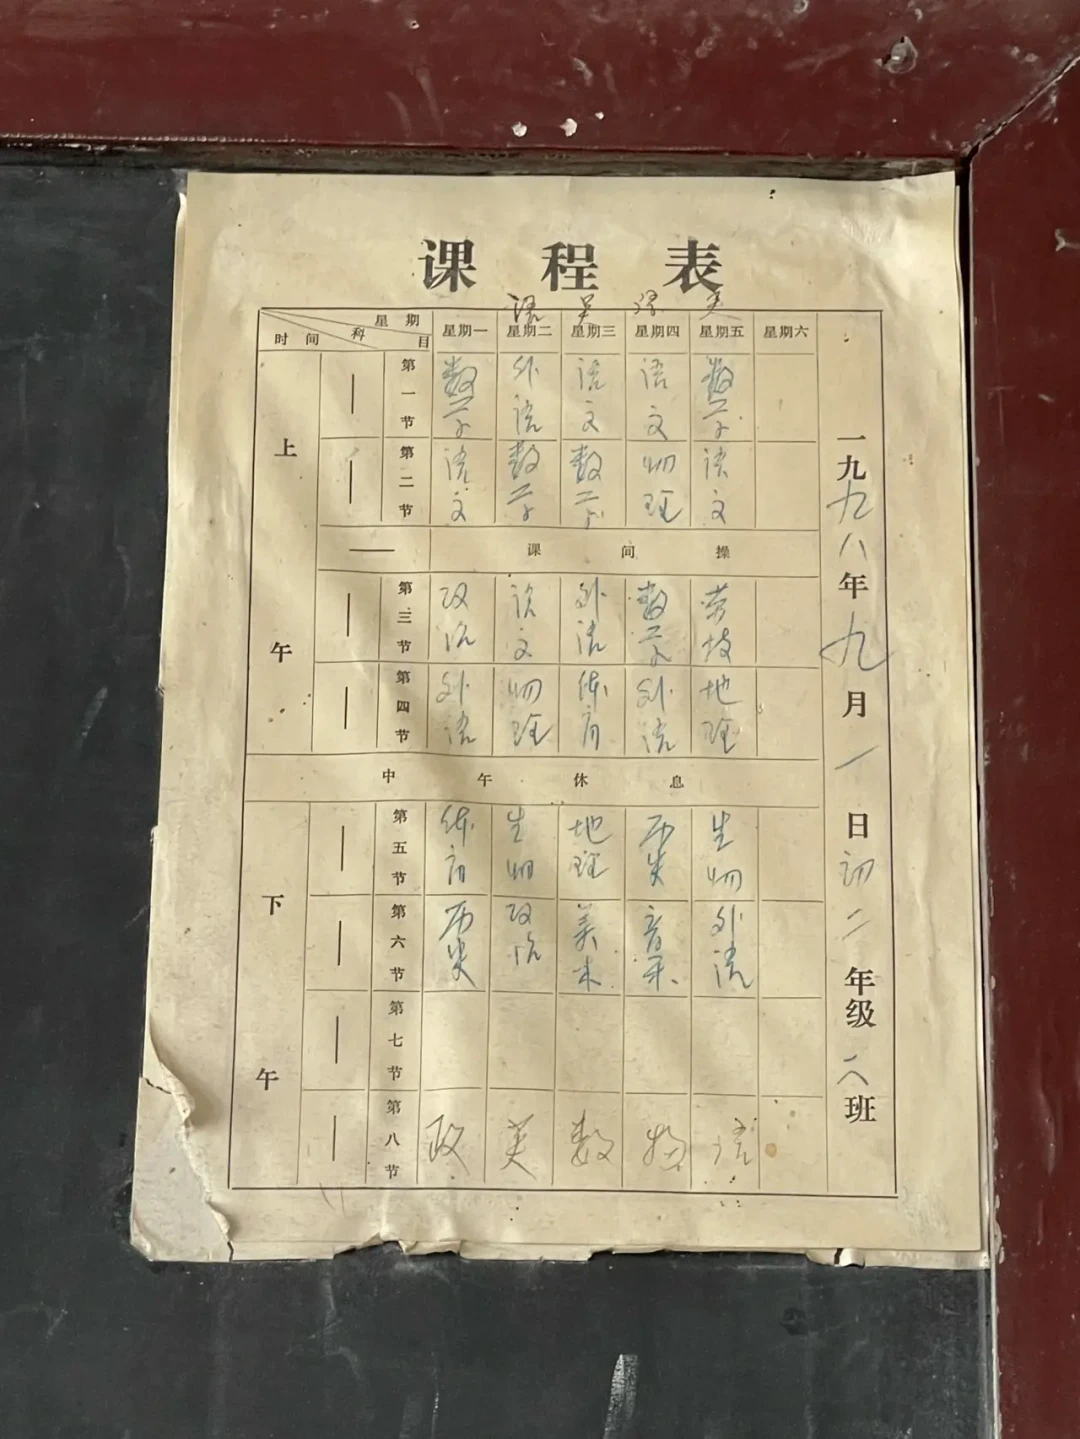 课程表
语 英 语 英
星期 科目 时间 星期一 星期二 星期三 星期四 星期五 星期六
上午 第一节 数学 外语 语文 语文 数学
第二节 语文 数学 数学 物理 语文
课间操
第三节 政治 语文 外语 数学 劳技
第四节 外语 物理 体育 外语 地理
中午休息
下午 第五节 体育 生物 地理 历史 生物
第六节 历史 政治 美术 音乐 外语
第七节
第八节 政 英 数 物 语
一九九八年九月一日初二年级 班